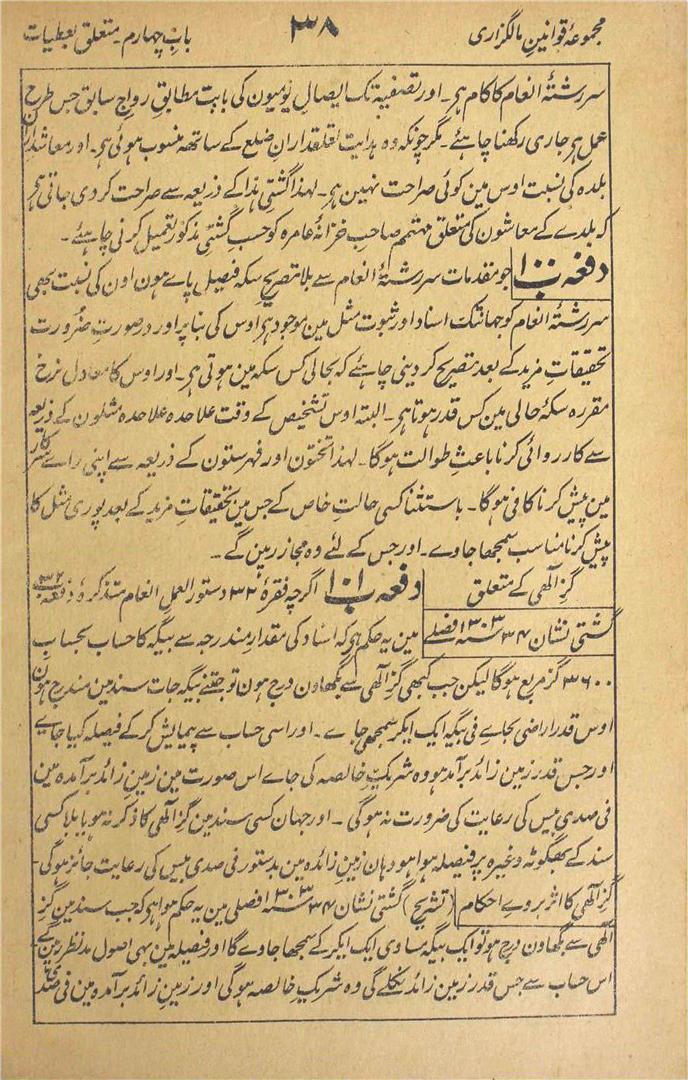 مجموعۂ قوانینِ مالگزاری
۳۸
بابِ چہارم۔ متعلق بعطیات
سررشتۂ انعام کا کام ہر۔ اور تصفیہ تک ایصالِ یومیون کی بابت مطابقِ رواجِ سابق جس طرح
عمل ہر جاری رکھنا چاہئے۔ مگر چونکہ وہ ہدایت تعلقدارانِ ضلع کے ساتھہ منسوب ہوئی ہر۔ اور معاشدارانِ
بلدہ کی نسبت اوس مین کوئی صراحت نہین ہر۔ لہذا گشتی ہذا کے ذریعہ سے صراحت کردی جاتی ہر
کہ بلدے کے معاشون کی متعلق مہتمم صاحبِ خزانۂ عامرہ کو حسبِ گشتیِ مذکور تعمیل کرنی چاہئے۔
دفعہ ۱۰۰ ب جو مقدمات سررشتۂ انعام سے بلا تصریحِ سکہ فیصل پاے ہون اون کی نسبت بھی
سررشتۂ انعام کو جہانتک اسناد اور ثبوت مثل مین موجود ہر اوس کی بنا پر اور در صورت ضرورت
تحقیقاتِ مزید کے بعد تصریح کر دینی چاہئے کہ بحالی کس سکہ مین ہوتی ہر۔ اور اوس کا معادل نرخ
مقررہ سکۂ حالی مین کس قدر ہوتا ہر۔ البتہ اوس تشخیص کے وقت علاحدہ علاحدہ مثلون کے ذریعہ
سے کارروائی کرنا باعثِ طوالت ہوگا۔ لہذا تختون اور فہرستون کے ذریعہ سے اپنی راے سرکار
مین پیش کرنا کافی ہوگا۔ باستثنا کسی حالتِ خاص کے جس مین تحقیقاتِ مزید کے بعد پوری مثل کا
پیش کرنا مناسب سمجھا جاوے۔ اور جس کے لئے وہ مجاز رہین گے۔
گز الٰھی کے متعلق
دفعہ ۱۰۱ ب اگرچہ فقرۂ ۳۲ دستور العمل انعام متذکرۂ دفعہ
گشتی نشان ۳۴ ۱۳۰۳ سنہ افضلے مین یہ حکم ہر کہ اسناد کی مقدارِ مندرجہ سے بیگہ کا حساب بحساب
۳۶۰۰ گز مربع ہوگا لیکن جب کبھی گز الٰھی سے بگھاون درج ہون تو جتنے بیگہ جات سند مین مندرج ہون
اوس قدر اراضی بجاے فی بیگہ ایک ایکر سمجھی جاے۔ اور اسی حساب سے پیمایش کرکے فیصلہ کیا جاے
اور جس قدر زمین زائد برآمد ہو وہ شریکِ خالصہ کی جاے اس صورت مین زمینِ زائد برآمدہ مین
فی صدی بیس کی رعایت کی ضرورت نہ ہوگی۔ اور جہان کسی سند مین گز الٰھی کا ذکر نہ ہو یا بلا کسی
سند کے بھگوٹہ وغیرہ پر فیصلہ ہوا ہو وہان زمینِ زائدہ مین بدستور فی صدی بیس کی رعایت جائز ہوگی۔
گز الٰھی کا اثر بروے احکام (تشریح) گشتی نشان ۳۴ ۱۳۰۳ سنہ افصلی مین یہ حکم ہوا ہر کہ جب سند مین گز
الٰھی سے بگھاون درج ہو تو ایک بیگہ مساوی ایک ایکر کے سمجھا جاوے گا اور فیصلہ مین یہی اصول مد نظر رہین گے
اس حساب سے جس قدر زمین زائد نکلے گی وہ شریکِ خالصہ ہوگی اور زمینِ زائد برآمدہ مین فی صدی